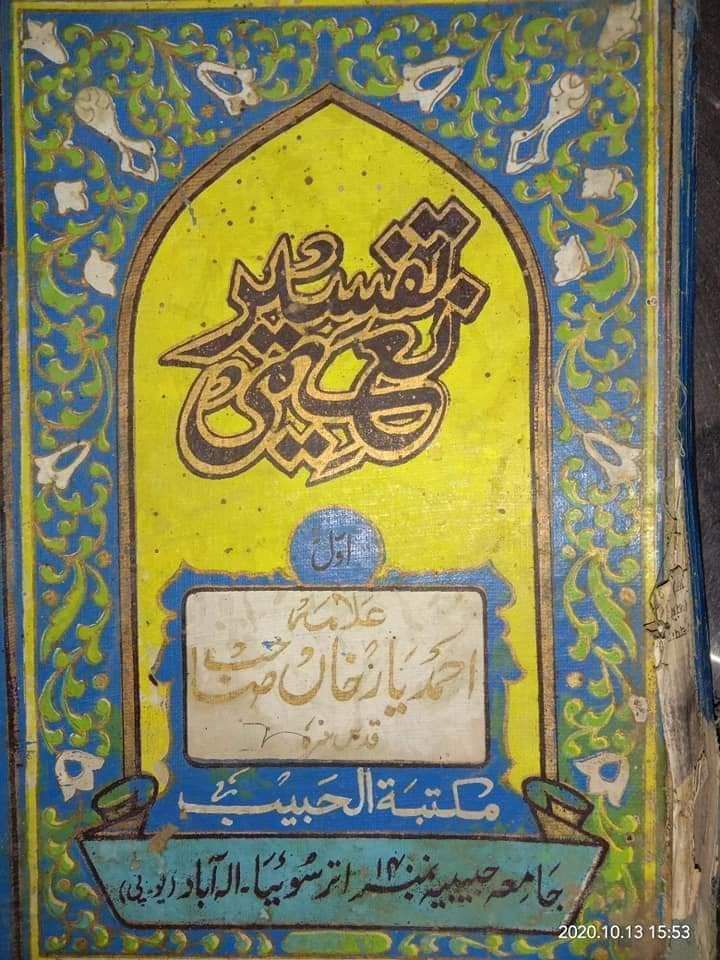 تفسیر
نعیمی
اوّل
علامہ
احمد یار خاں صاحب
قدس سرہ
مکتبۃ الحبیب
جامعہ حبیبیہ نمبر ۱۴۰ اترسوئیا۔ الہ آباد (یوپی)
2020.10.13 15:53